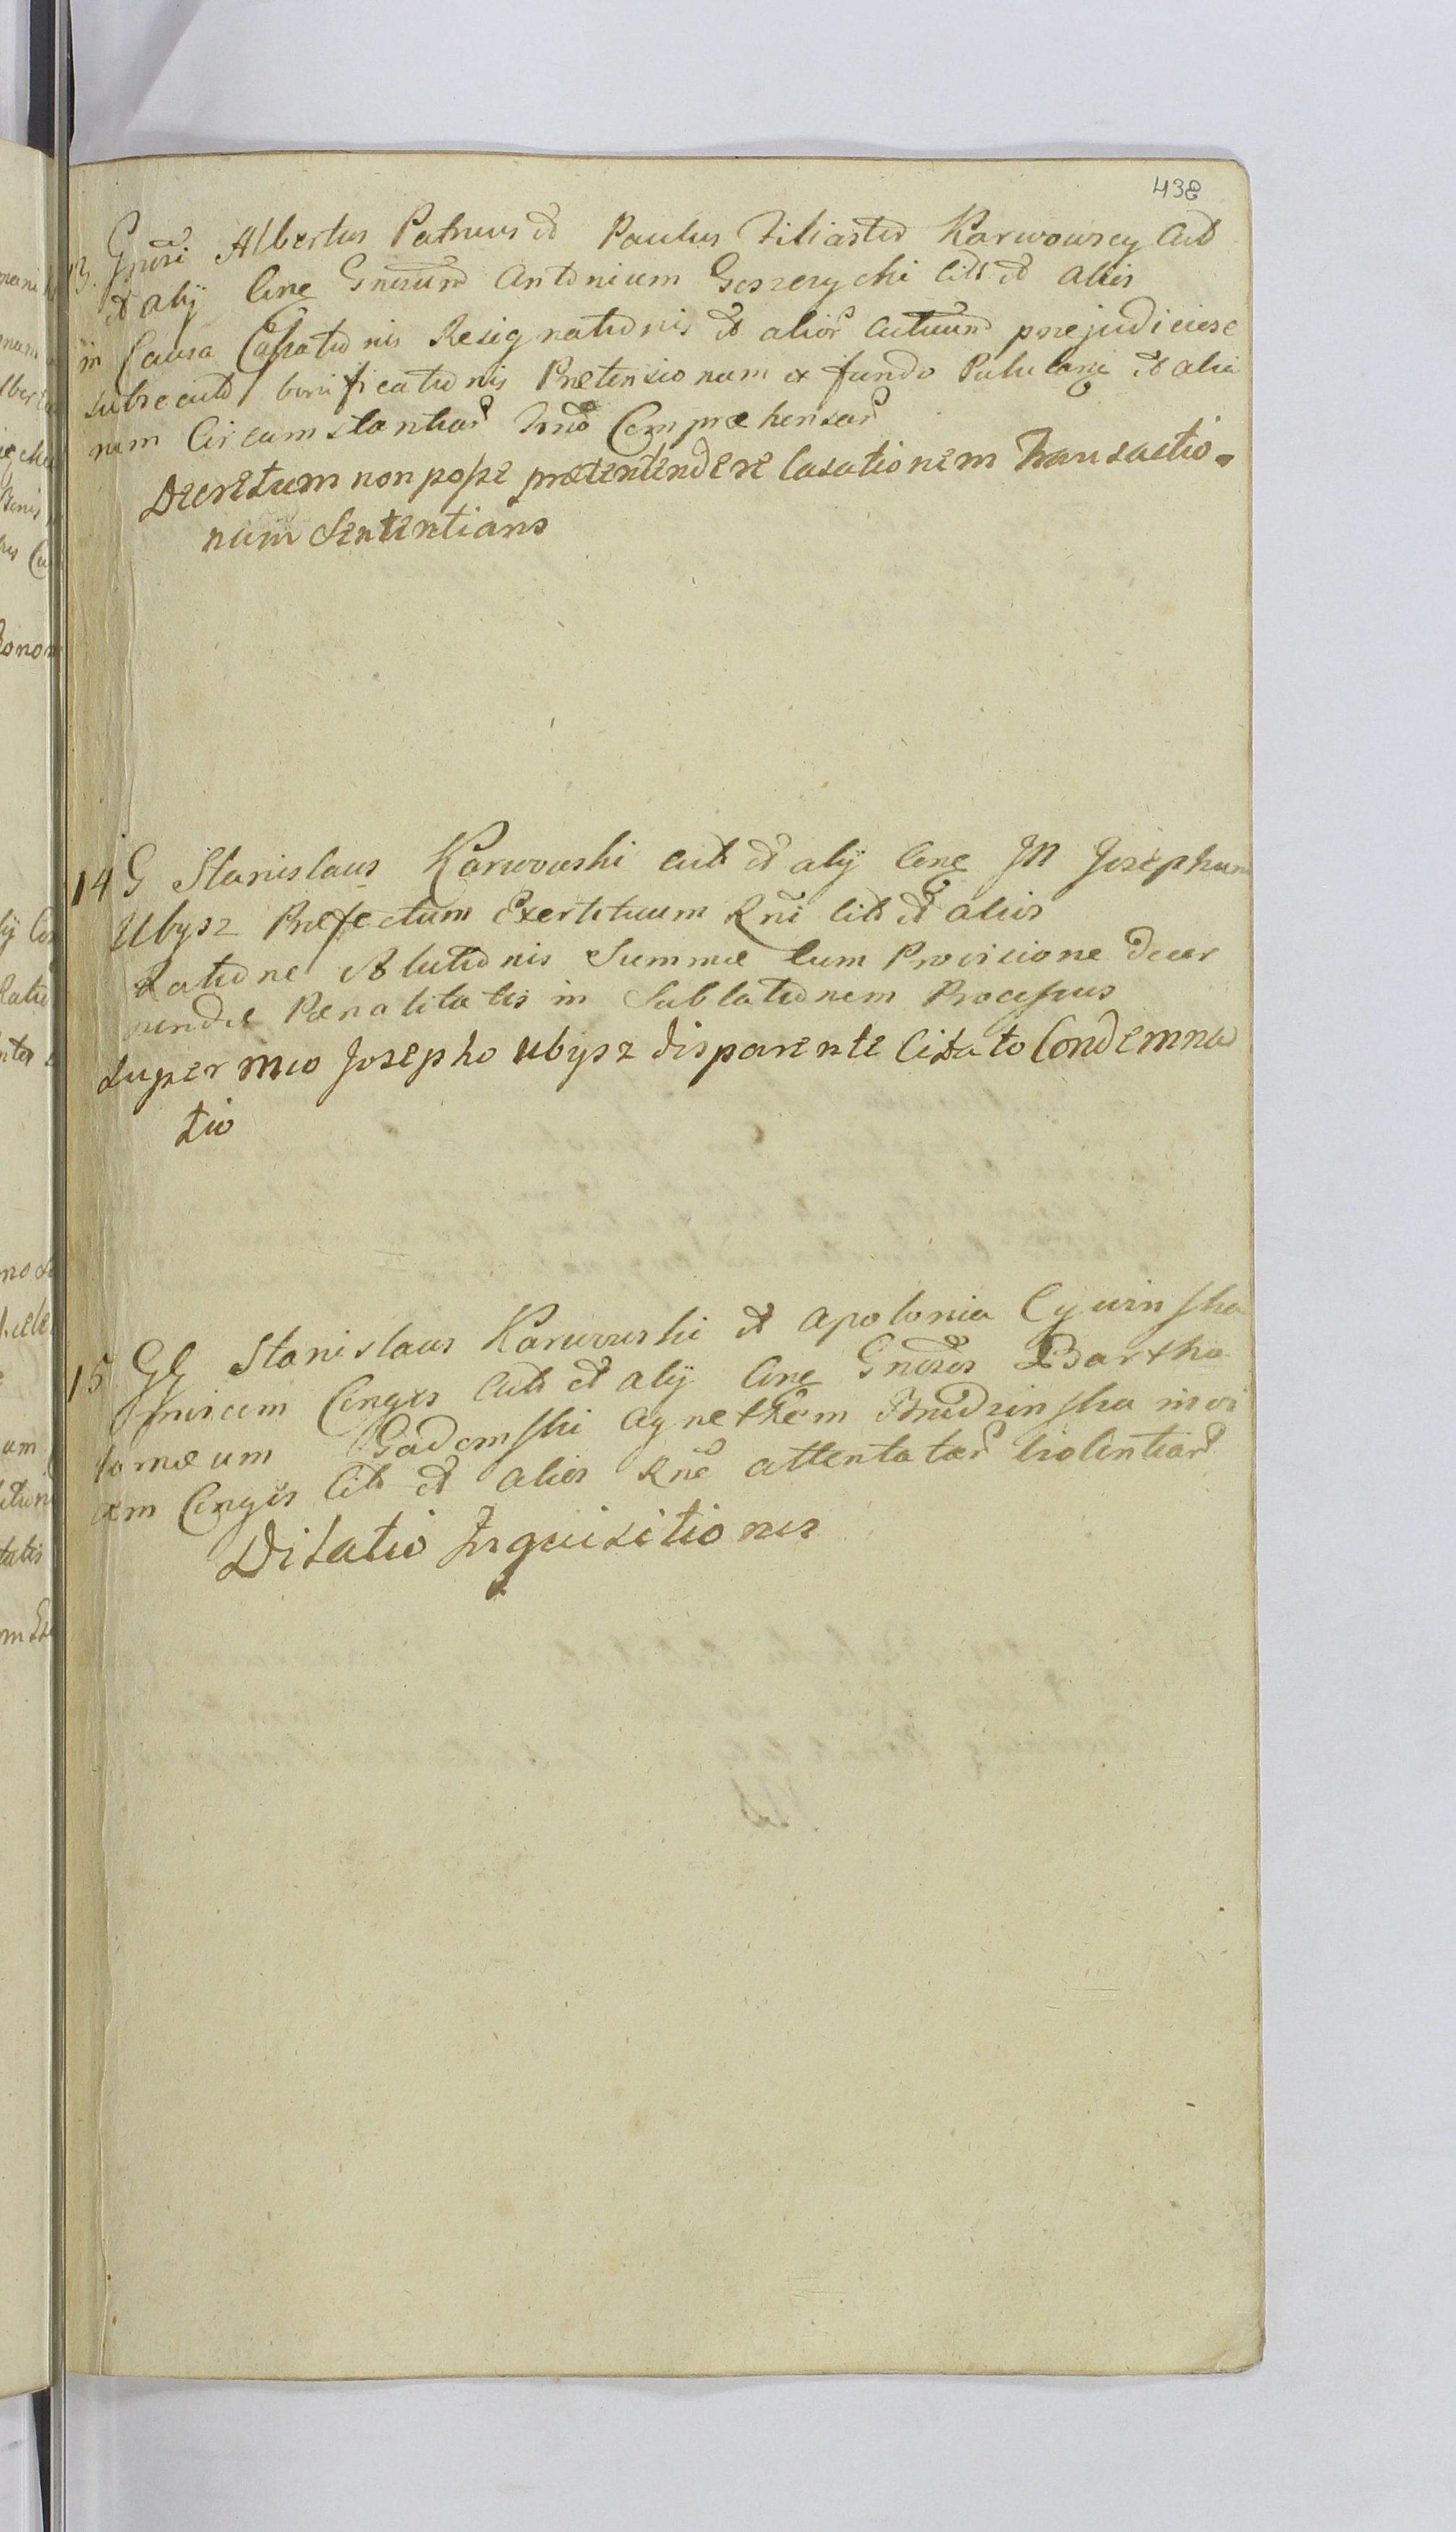 438
13. Gnosi Albertus Patruus et Paulus Filiaster Karwowscy Act
et alij Cone Gnosum Antonium Goszczycki Citt et alios
in Causa Cassationis Resignationis et alior actuum prejudiciose
subsecut bonificationis Prætensionum ex fundo et alia
rum Circumstantiar Comprehensar
Decretum non posse prætentendere Casationem Transactio-
num Sententians
14 G Stanislaus Karwowski act et alij Cone M Josephum
Ubysz Præfectum Exercituum Rni Citt et alios
Ratione Solutionis Summæ cum Provisione decer
nendæ Pænalitatis in Sublationem Processus
Super Mco Josepho Ubysz disparente Citato Condemna
tio
15 GG Stanislaus Karwowski et Apolonia Cywinska
invicem Conges Actt et alij Cone Gnosos Bartho
lomæum Gadomski Agnethem invi
cem Conges Citt et alios Rne attentatar violentiar
Dilatio Inquisitionis